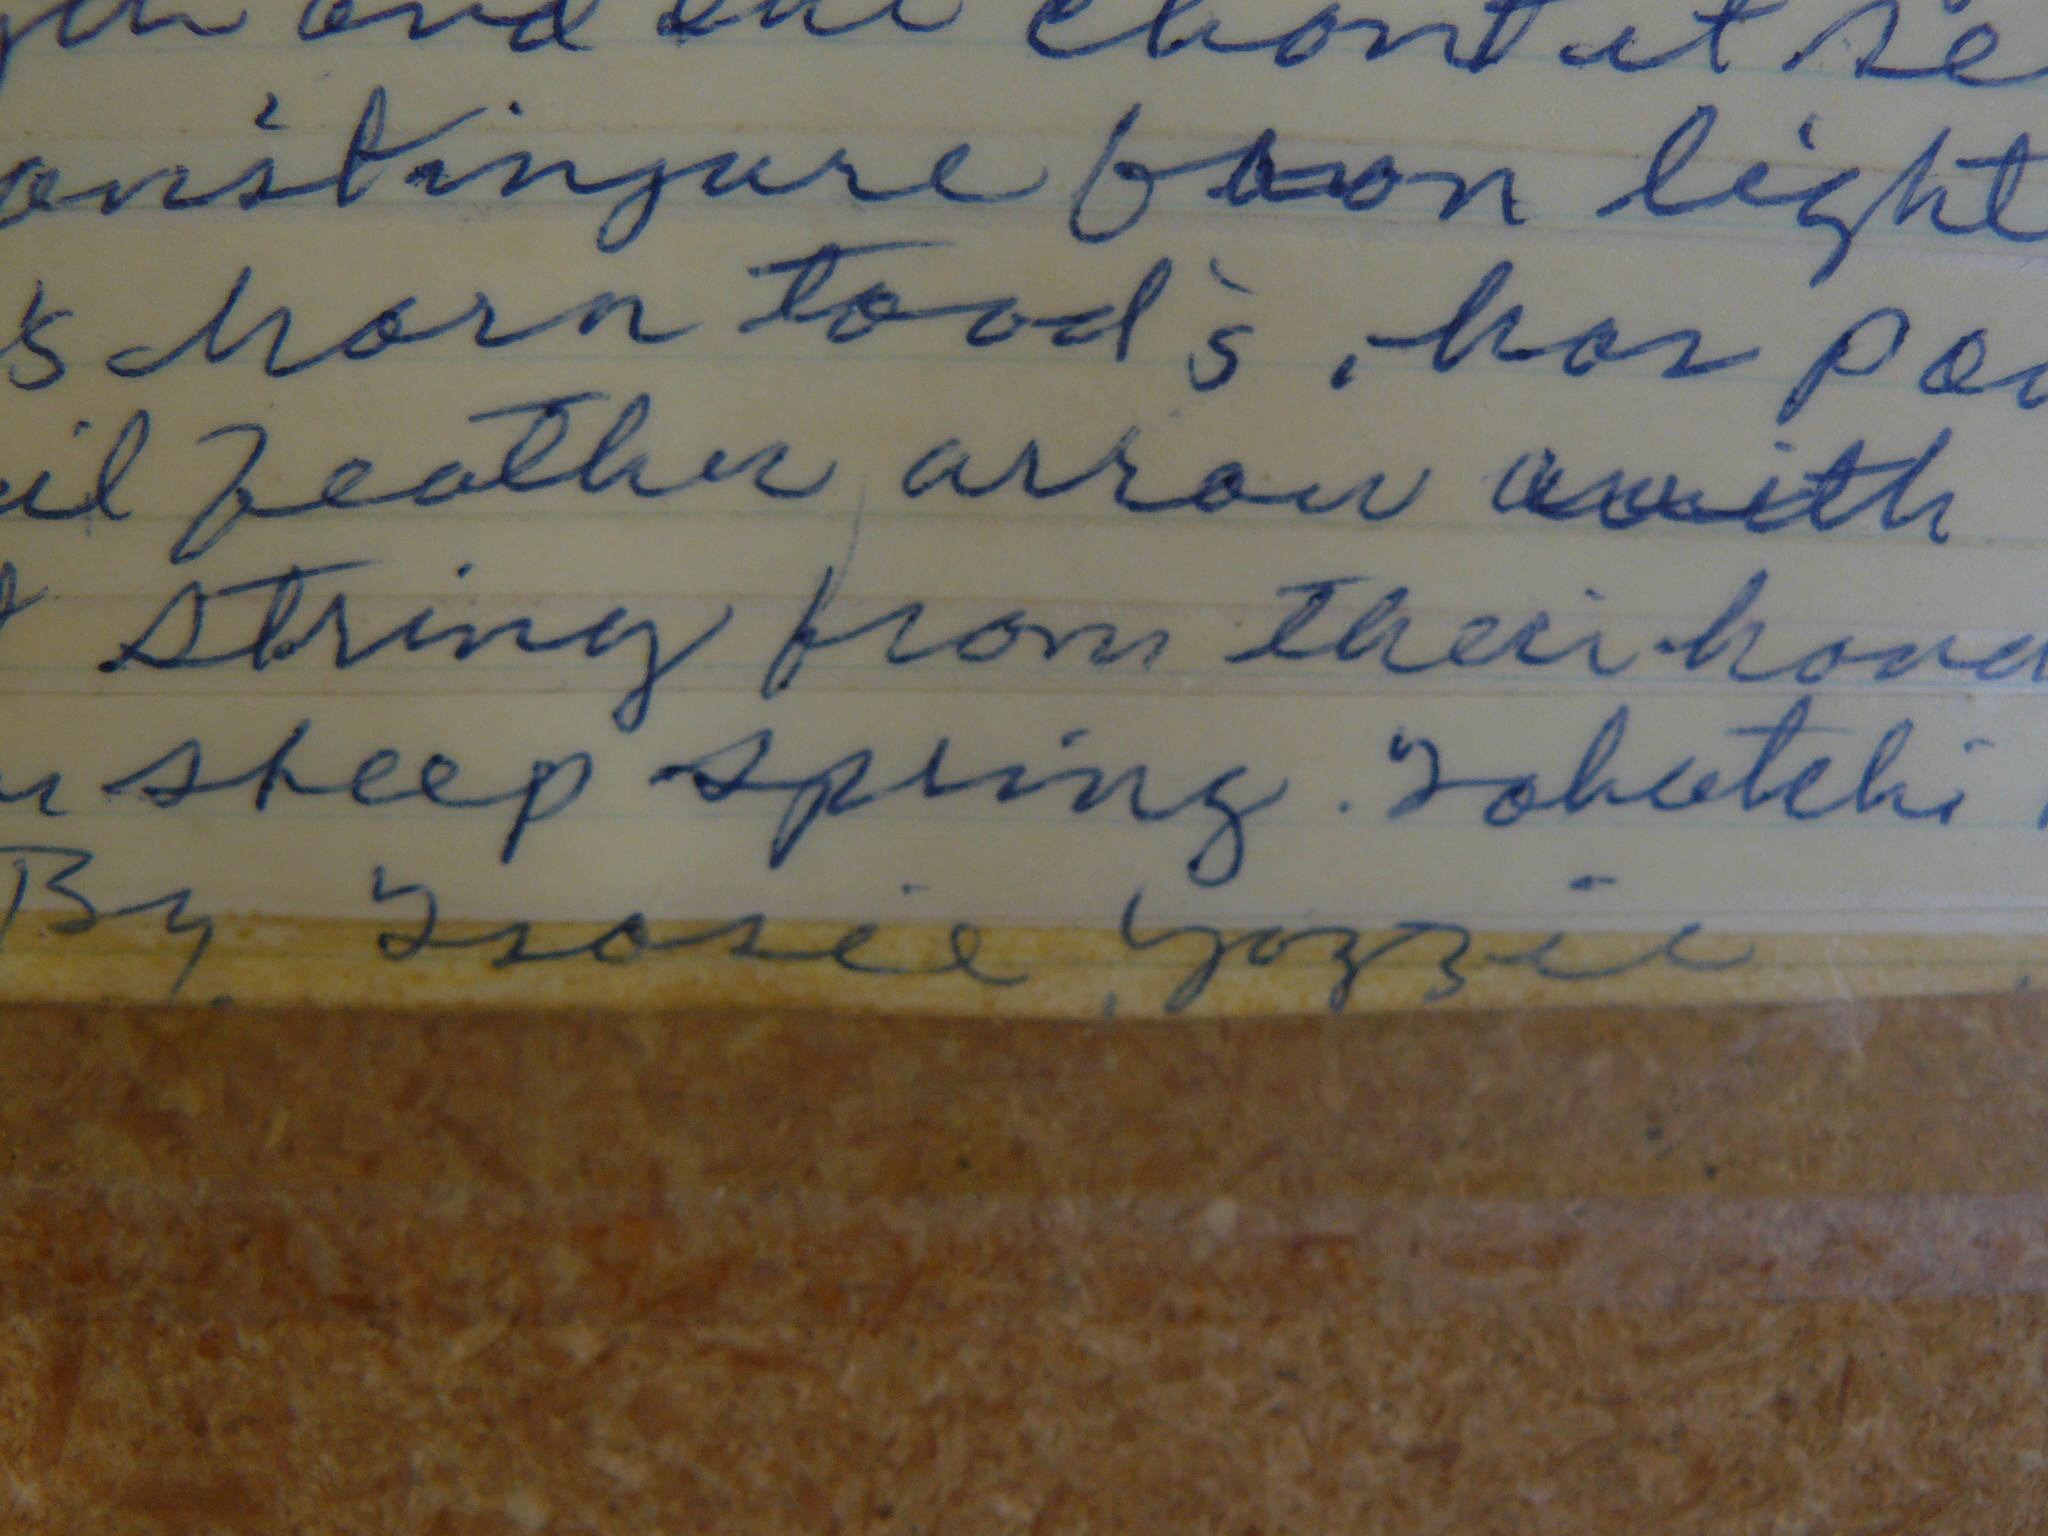 and the chant it se
onist injure from light
's horn toad's, has po
il feather arrow with
string from their hand
sheep spring. Tohatchi
By. Yazzie